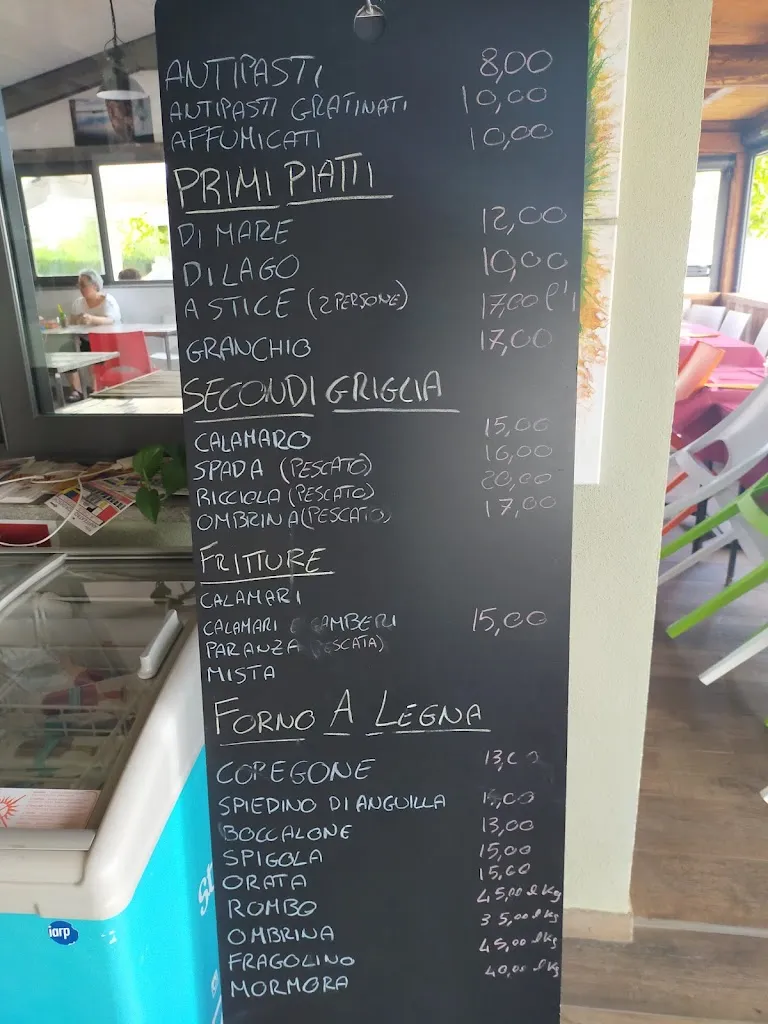 ANTIPASTI 8,00
ANTIPASTI GRATINATI 10,00
AFFUMICATI 10,00
PRIMI PIATTI
DI MARE 12,00
DI LAGO 10,00
ASTICE (2 PERSONE) 17,00 l'1
GRANCHIO 17,00
SECONDI GRIGLIA
CALAMARO 15,00
SPADA (PESCATO) 16,00
RICCIOLA (PESCATO) 20,00
OMBRINA (PESCATO) 17,00
FRITTURE
CALAMARI
CALAMARI E GAMBERI 15,00
PARANZA
MISTA
FORNO A LEGNA
COREGONE
SPIEDINO DI ANGUILLA
BOCCALONE 13,00
SPIGOLA 15,00
ORATA 15,00
ROMBO 45,00 al kg
OMBRINA 35,00 al kg
FRAGOLINO 45,00 al kg
MORMORA 40,00 al kg
iarp